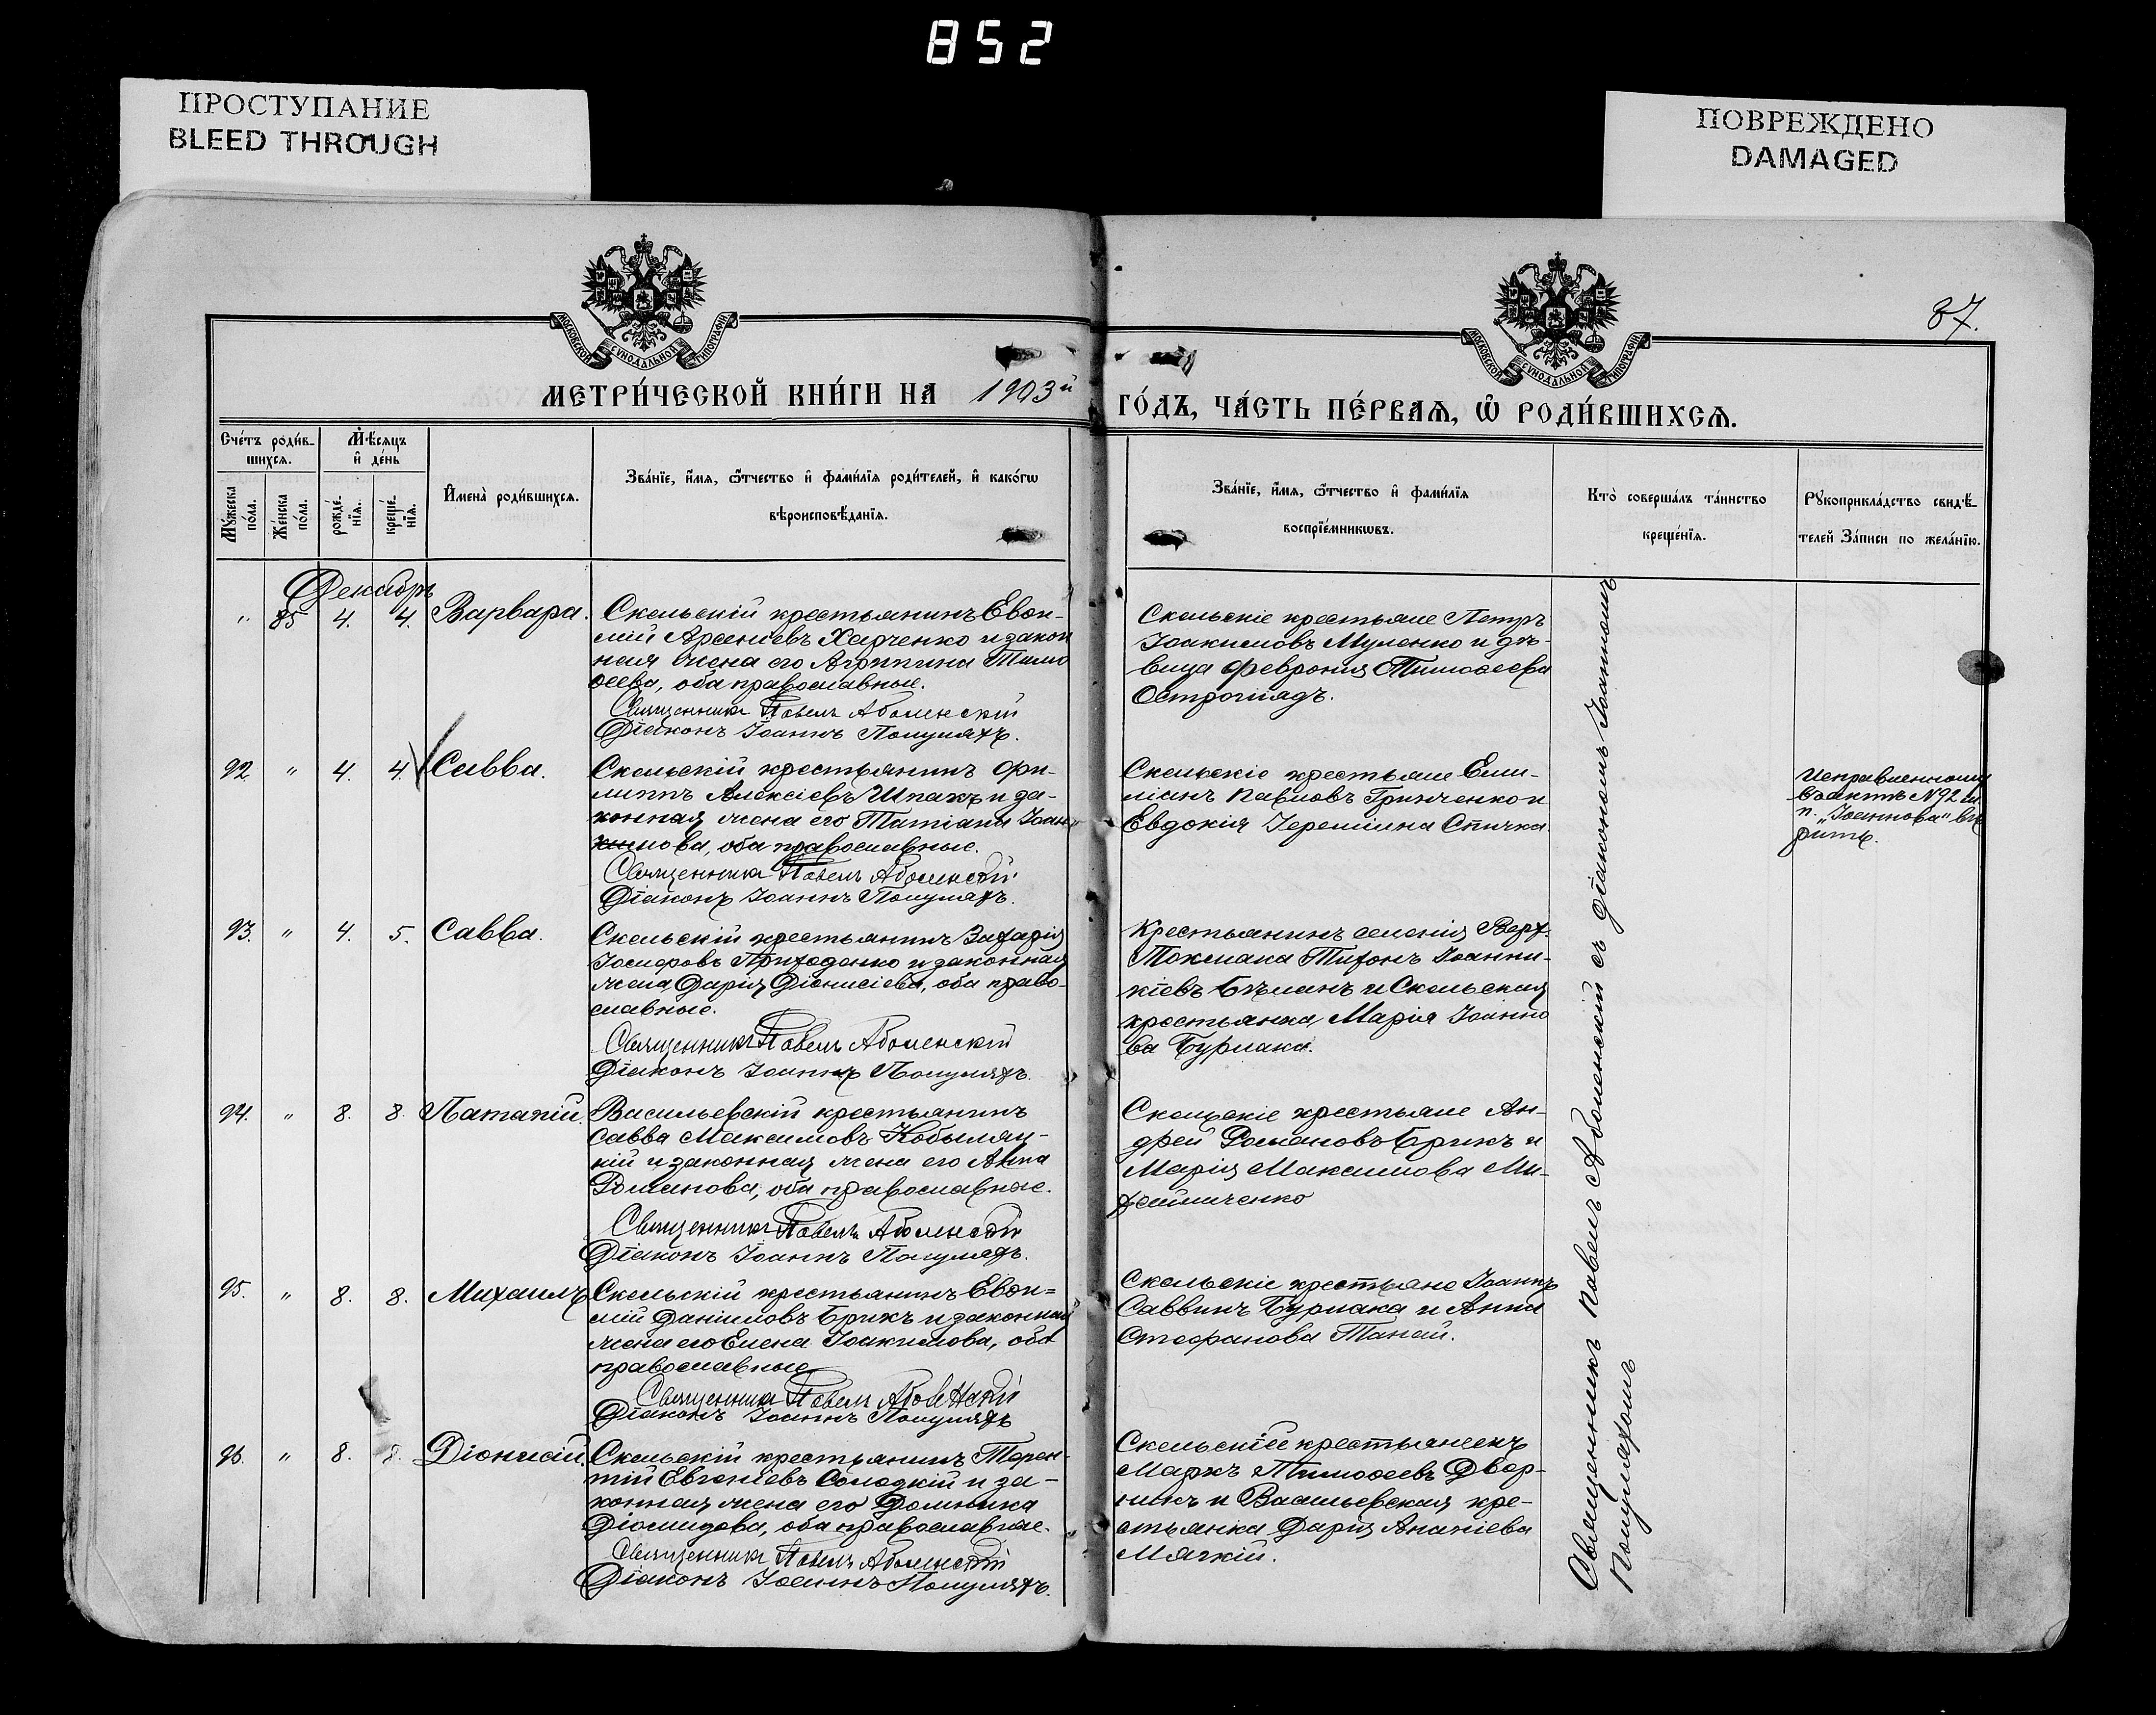 852
ПРОСТУПАНИЕ
BLEED THROUGH
ПОВРЕЖДЕНО
DAMAGED
МОСКОВСКОЙ СѴНОДАЛЬНОЙ ТИПОГРАФІИ
МОСКОВСКОЙ СѴНОДАЛЬНОЙ ТИПОГРАФІИ
87.
МЕТРИ́ЧЕСКОЙ КНИ́ГИ НА 1903й ГО́ДЪ, ЧА́СТЬ ПЕ́РВАЯ, Ѿ РОДИ́ВШИХСЯ.
Сче́тъ роди́в-
шихся.
Мѣ́сяцъ
и де́нь
Мꙋ́жеска по́ла.
Же́нска по́ла.
рожде́-
нїя.
креще́-
нїя.
Имена̀ роди́вшихся.
Зва́нїе, и́мя, ѻ҆́тчество и фами́лїя роди́телей, и како́гѡ
вѣроисповѣ́данїя.
Зва́нїе, и́мя, ѻ҆́тчество и фами́лїя
воспрїе́мникѡвъ.
Кто̀ соверша́лъ та́инство
креще́нїя.
Рꙋкоприкла́дство свидѣ́-
телей За́писи по жела́нїю.
Декабрь
" 85 4. 4. Варвара.
Скельскій крестьянинъ Евѳи-
мій Арсеніевъ Харченко и закон
ная жена его Агриппина Тимо
ѳеева, оба православные.
Священникъ Павелъ Аболенскій
Діаконъ Іоаннъ Полуляхъ.
Скельскіе крестьяне Петръ
Іоакимовъ Муленко и дѣ-
вица Феврония Тимоѳеева
Острогладъ.
92 " 4. 4. Савва.
Скельскій крестьянинъ Фи-
липпъ Алексіевъ Шпакъ и за-
конная жена его Татіана Іоан-
нова, оба православные.
Священникъ Павелъ Аболенскій
Діаконъ Іоаннъ Полуляхъ.
Скельскіе крестьяне Еми-
ліанъ Павловъ Гринченко и
Евдокія Іереміина Спичка.
Исправленному
въ актѣ №92 м.
п. "Іоаннова" вѣ
рить.
93. " 4. 5. Савва.
Скельскій крестьянинъ Захарія
Іосифовъ Приходенко и законная
жена Дарія Діонисіева, оба право-
славные.
Священникъ Павелъ Аболенскій
Діаконъ Іоаннъ Полуляхъ.
Крестьянинъ селенія Верх.
Токмака Тихонъ Іоанни-
кіевъ Бѣланъ и Скельская
крестьянка Марія Іоанно
ва Бурлака.
94. " 8. 8. Патапій.
Васильевскій крестьянинъ
Савва Максимовъ Кобыляц-
кій и законная жена его Анна
Романова, оба православные.
Священникъ Павелъ Аболенскій
Діаконъ Іоаннъ Полуляхъ.
Скельскіе крестьяне Ан-
дрей Романовъ Брикъ и
Марія Максимова Ми-
хайличенко
95. " 8. 8. Михаилъ
Скельскій крестьянинъ Евѳи=
мій Даніиловъ Брикъ и законная
жена его Елена Іоакимова, оба
православные
Священникъ Павелъ Аболенскій
Діаконъ Іоаннъ Полуляхъ
Скельскіе крестьяне Іоаннъ
Саввинъ Бурлака и Анна
Стефанова Танай.
96. " 8. 8. Діонисій.
Скельскій крестьянинъ Терен-
тій Евгеніевъ Солодкій и за-
конная жена его Домника
Діомидова, оба православные.
Священникъ Павелъ Аболенскій
Діаконъ Іоаннъ Полуляхъ.
Скельскій крестьянинъ
Маркъ Тимоѳеевъ Двор-
никъ и Васильевская кре-
стьянка Дарія Ананіева
Мягкій.
Священникъ Павелъ Аболенскій съ діакономъ Іоанномъ
Полуляхомъ